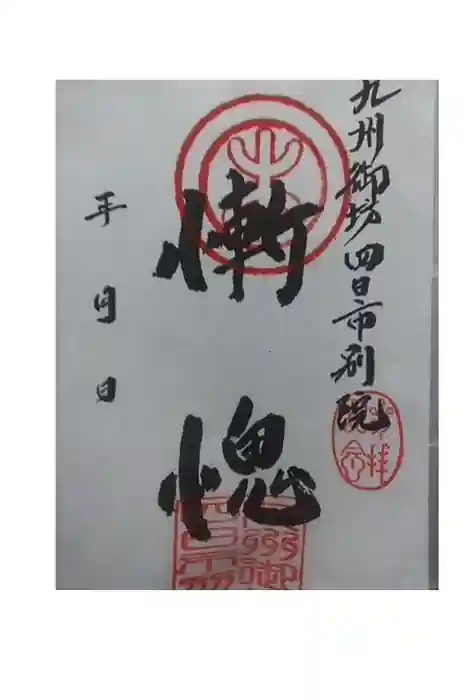 九州御坊四日市別院
慚愧
年月日